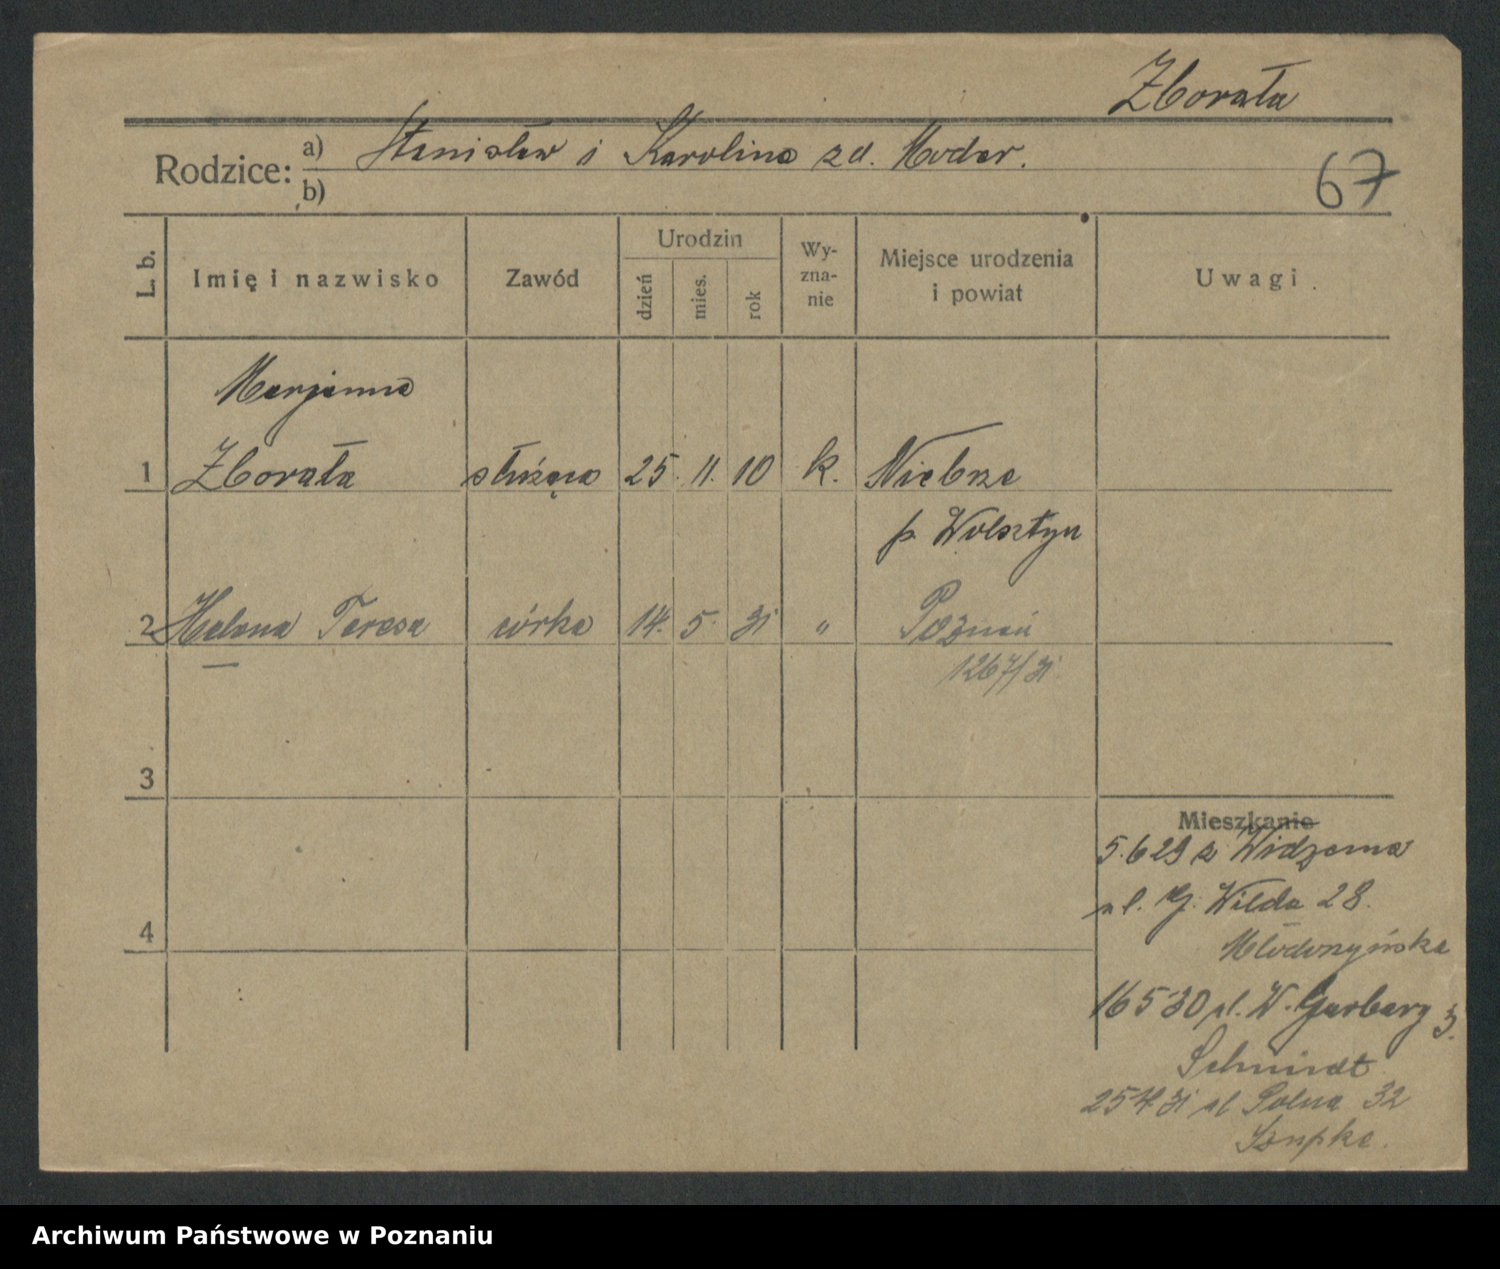 Zborała
Rodzice: a) Stanisław i Karolina z d. Moder.
b)
67
L. b.
Imię i nazwisko
Zawód
Urodzin
dzień
mies.
rok
Wy-
zna-
nie
Miejsce urodzenia
i powiat
Uwagi
Marjanna
1 Zborała służąca 25. 11. 10 k. Niebrze
p. Wolsztyn
2 Helena Teresa córka 14. 5. 31 " Poznań
1267/31
3
4
Mieszkanie
5.6 29 z Widzema
ul. G. Wilda 28.
Młodozyńska
16 5 30 ul. W. Garbary 3.
Schmidt
25 4 31 ul Solna 32
Archiwum Państwowe w Poznaniu